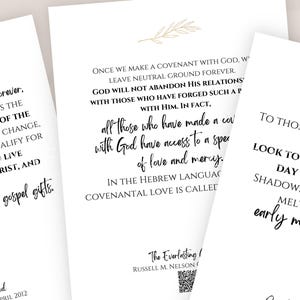 orever,
S THE
OF THE
CHANGE,
ALIFY FOR
LIVE
RIST, AND
gospel gifts.
APRIL 2012
ONCE WE MAKE A COVENANT WITH GOD, W
LEAVE NEUTRAL GROUND FOREVER.
GOD WILL NOT ABANDON HIS RELATIONS
WITH THOSE WHO HAVE FORGED SUCH A
WITH HIM. IN FACT,
all those who have made a cov
with God have access to a spec
of love and mercy.
IN THE HEBREW LANGUAG
COVENANTAL LOVE IS CALLED
The Everlasting
RUSSELL M. NELSON
TO THO
LOOK TO
DAY
SHADOW
MEL
early m